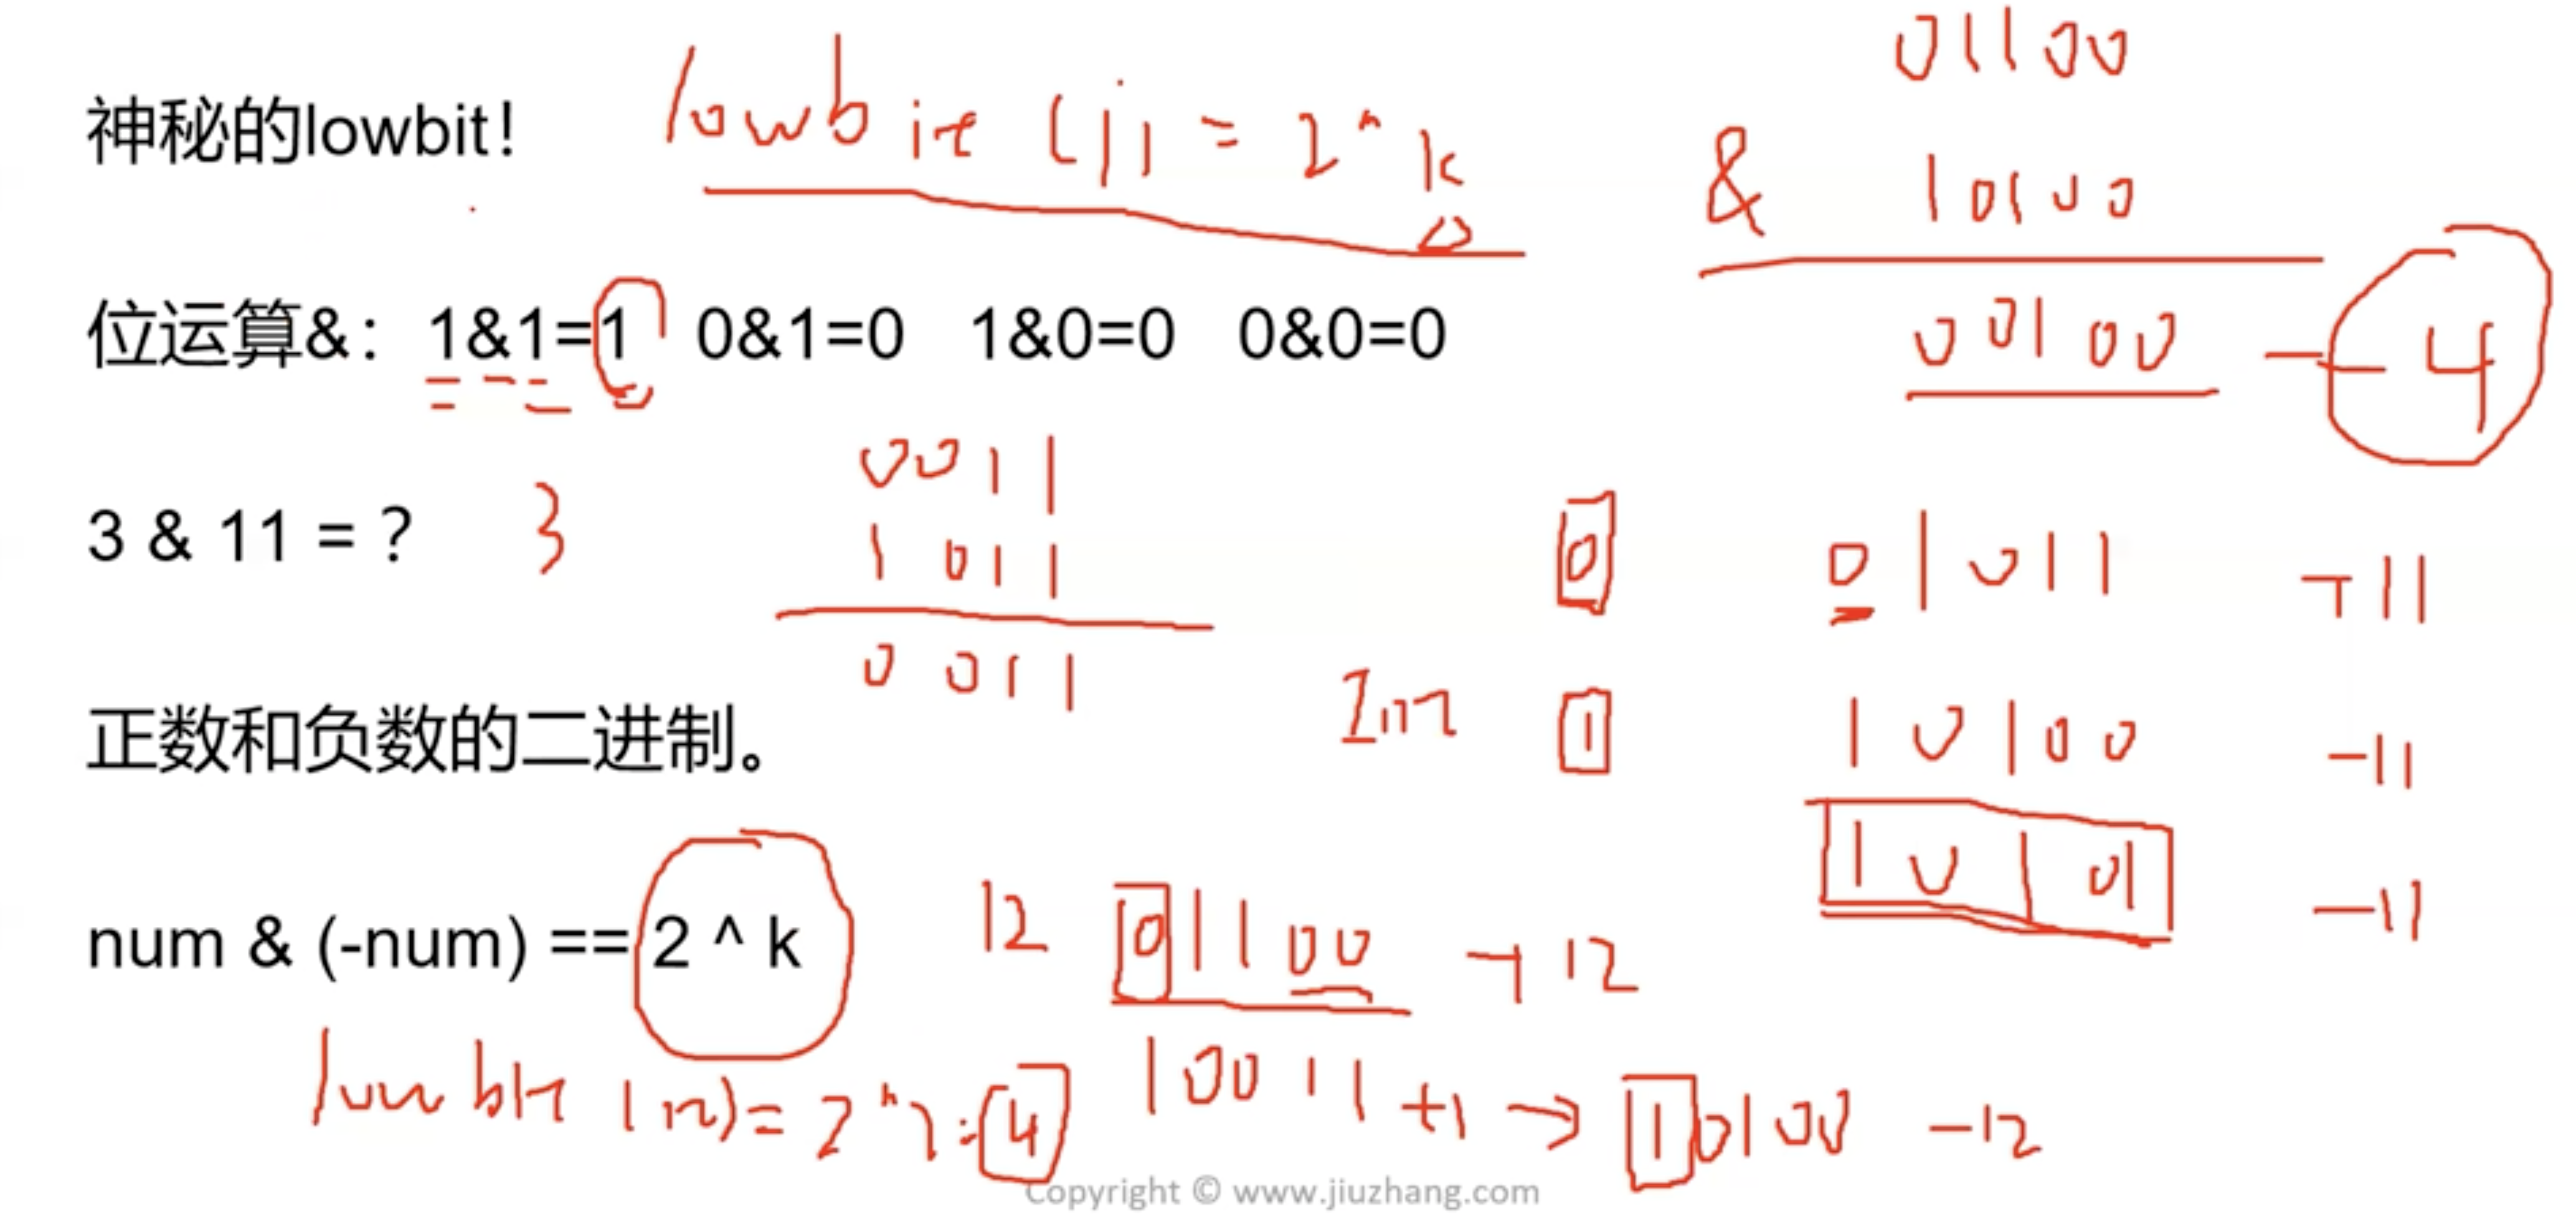 神秘的lowbit！ lowbit (j) = 2^k
01100
& 10100
00100 — 4
位运算&：1&1=1 0&1=0 1&0=0 0&0=0
3 & 11 = ？ 3
0011
1011
0011
0 01011 +11
正数和负数的二进制。 Int 1 10100 -11
10101 -11
num & (-num) == 2 ^ k 12 01100 +12
lowbit (12) = 2^2 = 4 10011 +1 → 10100 -12
Copyright © www.jiuzhang.com